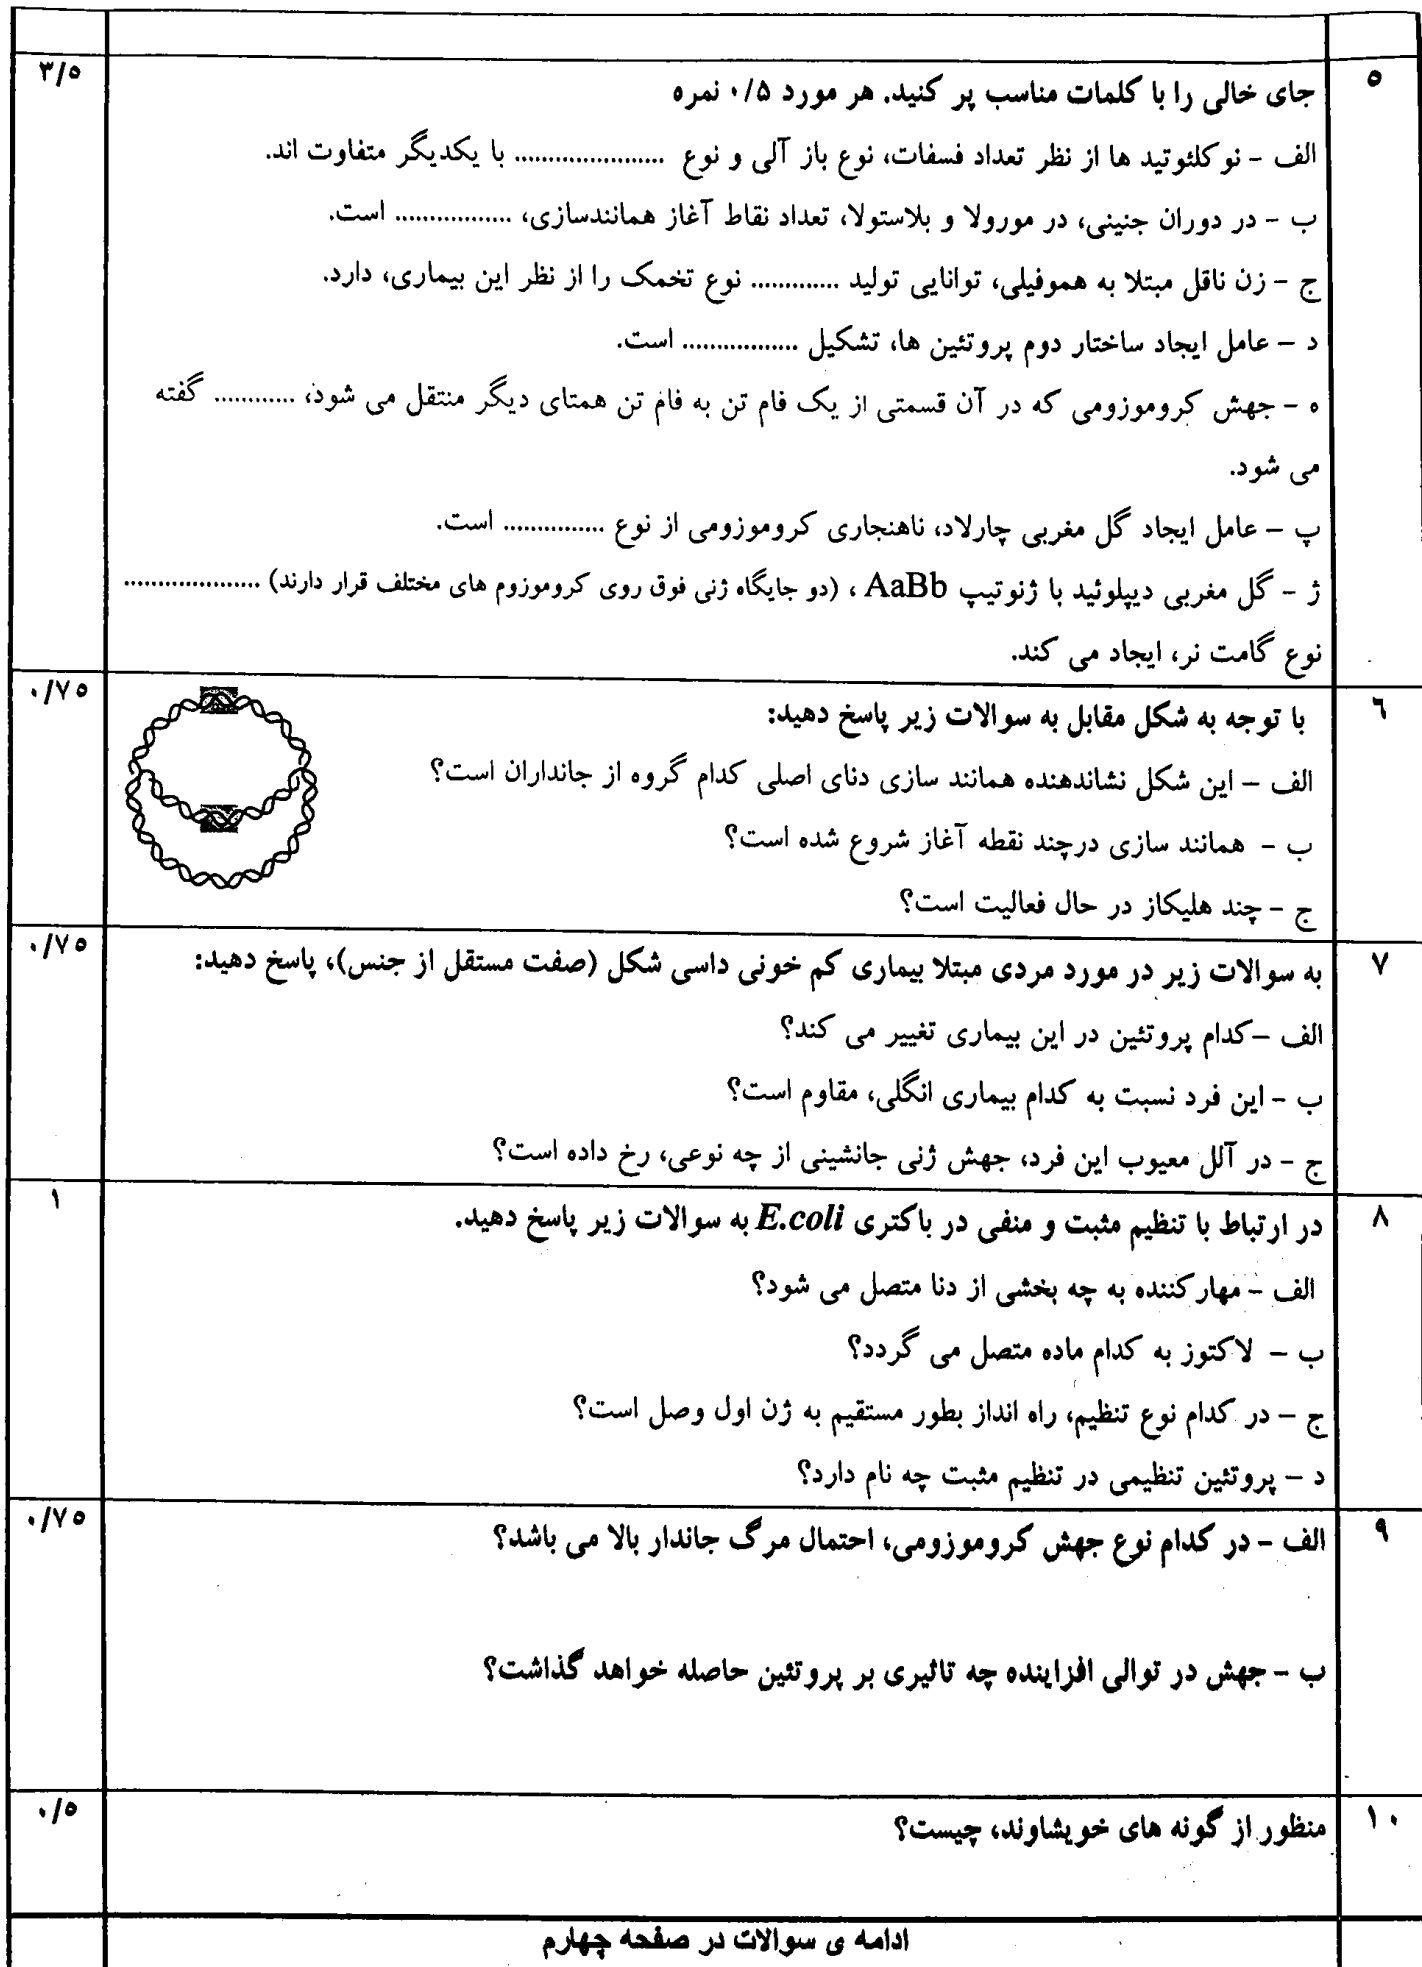 ۵
۳/۵
جای خالی را با کلمات مناسب پر کنید. هر مورد ۰/۵ نمره
الف - نوکلئوتید ها از نظر تعداد فسفات، نوع باز آلی و نوع ...................... با یکدیگر متفاوت اند.
ب - در دوران جنینی، در مورولا و بلاستولا، تعداد نقاط آغاز همانندسازی، ................. است.
ج - زن ناقل مبتلا به هموفیلی، توانایی تولید ............. نوع تخمک را از نظر این بیماری، دارد.
د - عامل ایجاد ساختار دوم پروتئین ها، تشکیل ................. است.
ه - جهش کروموزومی که در آن قسمتی از یک فام تن به فام تن همتای دیگر منتقل می شود، ............ گفته
می شود.
پ - عامل ایجاد گل مغربی چارلاد، ناهنجاری کروموزومی از نوع ............... است.
ژ - گل مغربی دیپلوئید با ژنوتیپ AaBb ، (دو جایگاه ژنی فوق روی کروموزوم های مختلف قرار دارند) ....................
نوع گامت نر، ایجاد می کند.
۶
۰/۷۵
با توجه به شکل مقابل به سوالات زیر پاسخ دهید:
الف - این شکل نشاندهنده همانند سازی دنای اصلی کدام گروه از جانداران است؟
ب - همانند سازی درچند نقطه آغاز شروع شده است؟
ج - چند هلیکاز در حال فعالیت است؟
۷
۰/۷۵
به سوالات زیر در مورد مردی مبتلا بیماری کم خونی داسی شکل (صفت مستقل از جنس)، پاسخ دهید:
الف -کدام پروتئین در این بیماری تغییر می کند؟
ب - این فرد نسبت به کدام بیماری انگلی، مقاوم است؟
ج - در آلل معیوب این فرد، جهش ژنی جانشینی از چه نوعی، رخ داده است؟
۸
۱
در ارتباط با تنظیم مثبت و منفی در باکتری E.coli به سوالات زیر پاسخ دهید.
الف - مهارکننده به چه بخشی از دنا متصل می شود؟
ب - لاکتوز به کدام ماده متصل می گردد؟
ج - در کدام نوع تنظیم، راه انداز بطور مستقیم به ژن اول وصل است؟
د - پروتئین تنظیمی در تنظیم مثبت چه نام دارد؟
۹
۰/۷۵
الف - در کدام نوع جهش کروموزومی، احتمال مرگ جاندار بالا می باشد؟
ب - جهش در توالی افزاینده چه تاثیری بر پروتئین حاصله خواهد گذاشت؟
۱۰
۰/۵
منظور از گونه های خویشاوند، چیست؟
ادامه ی سوالات در صفحه چهارم